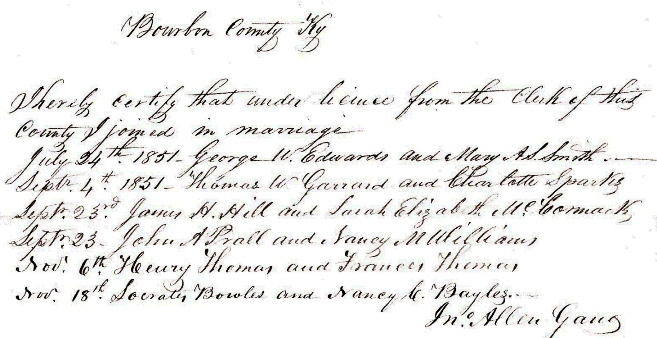 Bourbon County Ky
I hereby certify that under licence from the Clerk of this
County I joined in marriage
July 24th 1851 - George W. Edwards and Mary A S. Smith.
Septr. 4th. 1851 - Thomas W Garrard and Charlotte Sparks
Septr. 23rd James H. Hill and Sarah Elizabeth McCormack
Septr. 23 - John A Prall and Nancy M Williams
Nov. 6th. Henry Thomas and Frances Thomas
Nov. 18th. Socrates Bowles and Nancy C. Bayles.
Jno. Allen Gano